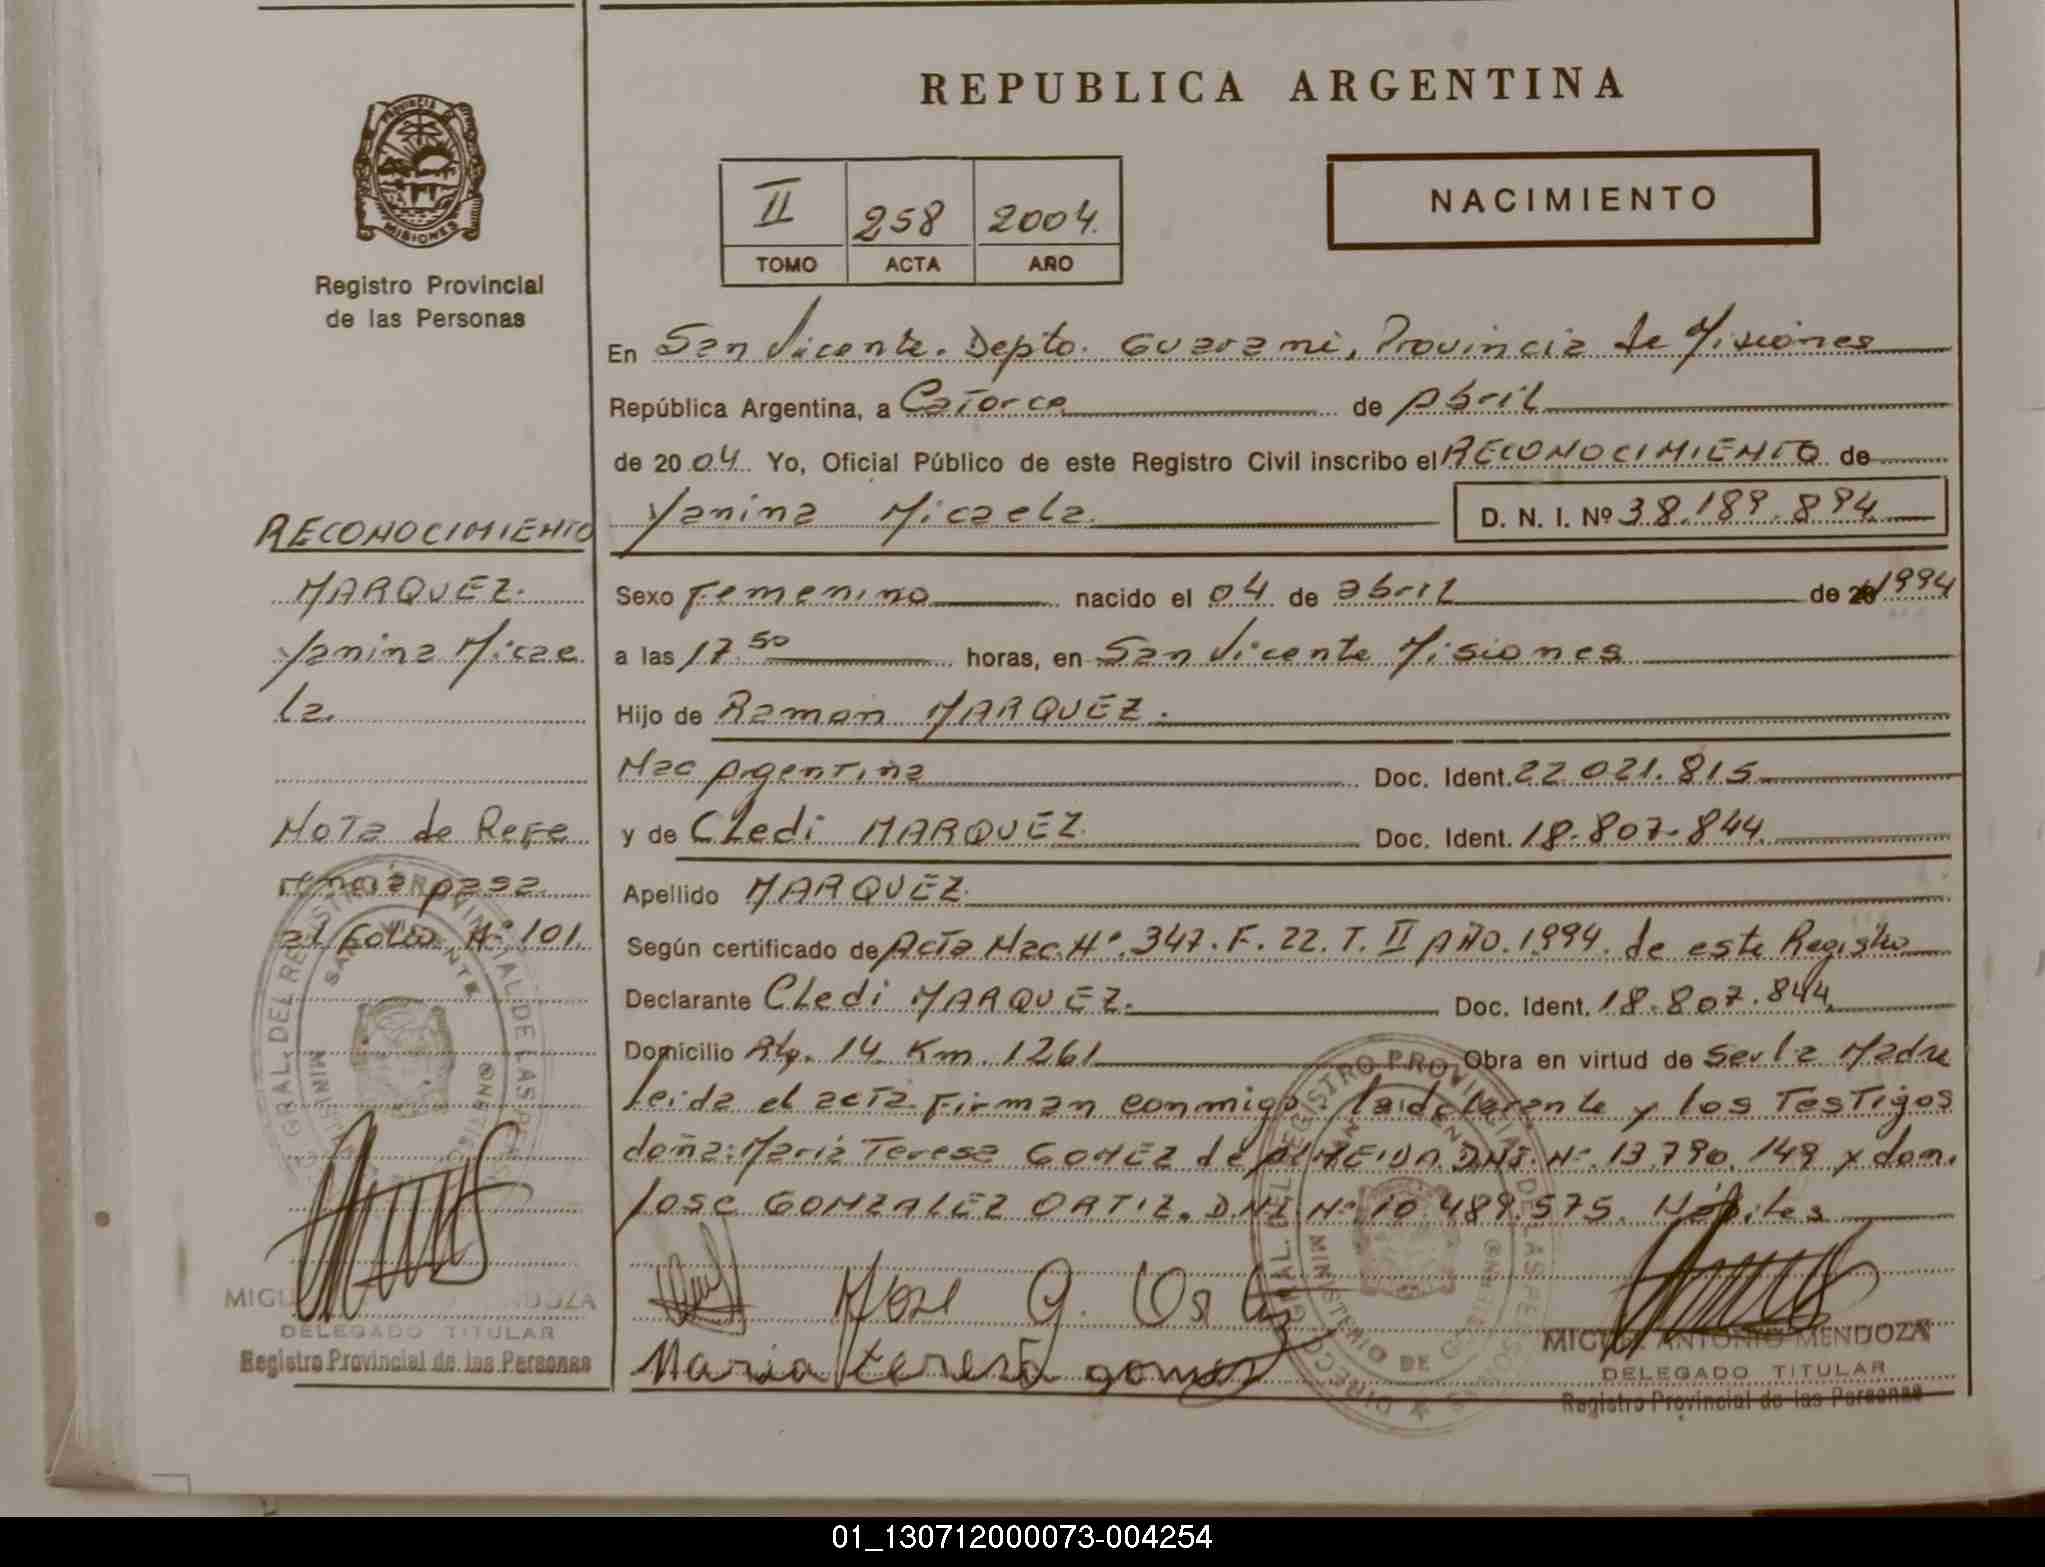 REPUBLICA ARGENTINA
PROVINCIA DE
MISIONES
Registro Provincial
de las Personas
II 258 2004.
TOMO ACTA AÑO
NACIMIENTO
En San Vicente. Depto. Guarami, Provincia de Misiones
República Argentina, a Catorce de Abril
de 2004. Yo, Oficial Público de este Registro Civil inscribo el RECONOCIMIENTO de
Yanina Micaela. D. N. I. Nº 38.189.894
Sexo Femenino nacido el 04 de abril de 20 1994
a las 17.50 horas, en San Vicente Misiones
Hijo de Ramon MARQUEZ.
Nac Argentina Doc. Ident. 22 021.815
y de Cledi MARQUEZ. Doc. Ident. 18.807.844.
Apellido MARQUEZ.
Según certificado de Acta Nac. Nº. 347. F. 22. T. II AÑO. 1994. de este Registro
Declarante Cledi MARQUEZ. Doc. Ident. 18.807.844
Domicilio Rta. 14 Km. 1261 Obra en virtud de ser la Madre
leida el acta firman conmigo. la declarante y los Testigos
doña: Maria Teresa GOMEZ de ALMEIDA DNI. Nº. 13.790.149 y don.
Jose GONZALEZ ORTIZ. D.N.I. Nº 10.489.575. Hábiles
RECONOCIMIENTO
MARQUEZ.
Yanina Micae
la.
Nota de Refe
rencia pasa
al folio Nº 101.
SAN VICENTE
MENDOZA
DELEGADO TITULAR
Registro Provincial de las Personas
Jose G.
Maria teresa gomez
MIGUEL ANTONIO MENDOZA
DELEGADO TITULAR
Registro Provincial de las Personas
01_130712000073-004254